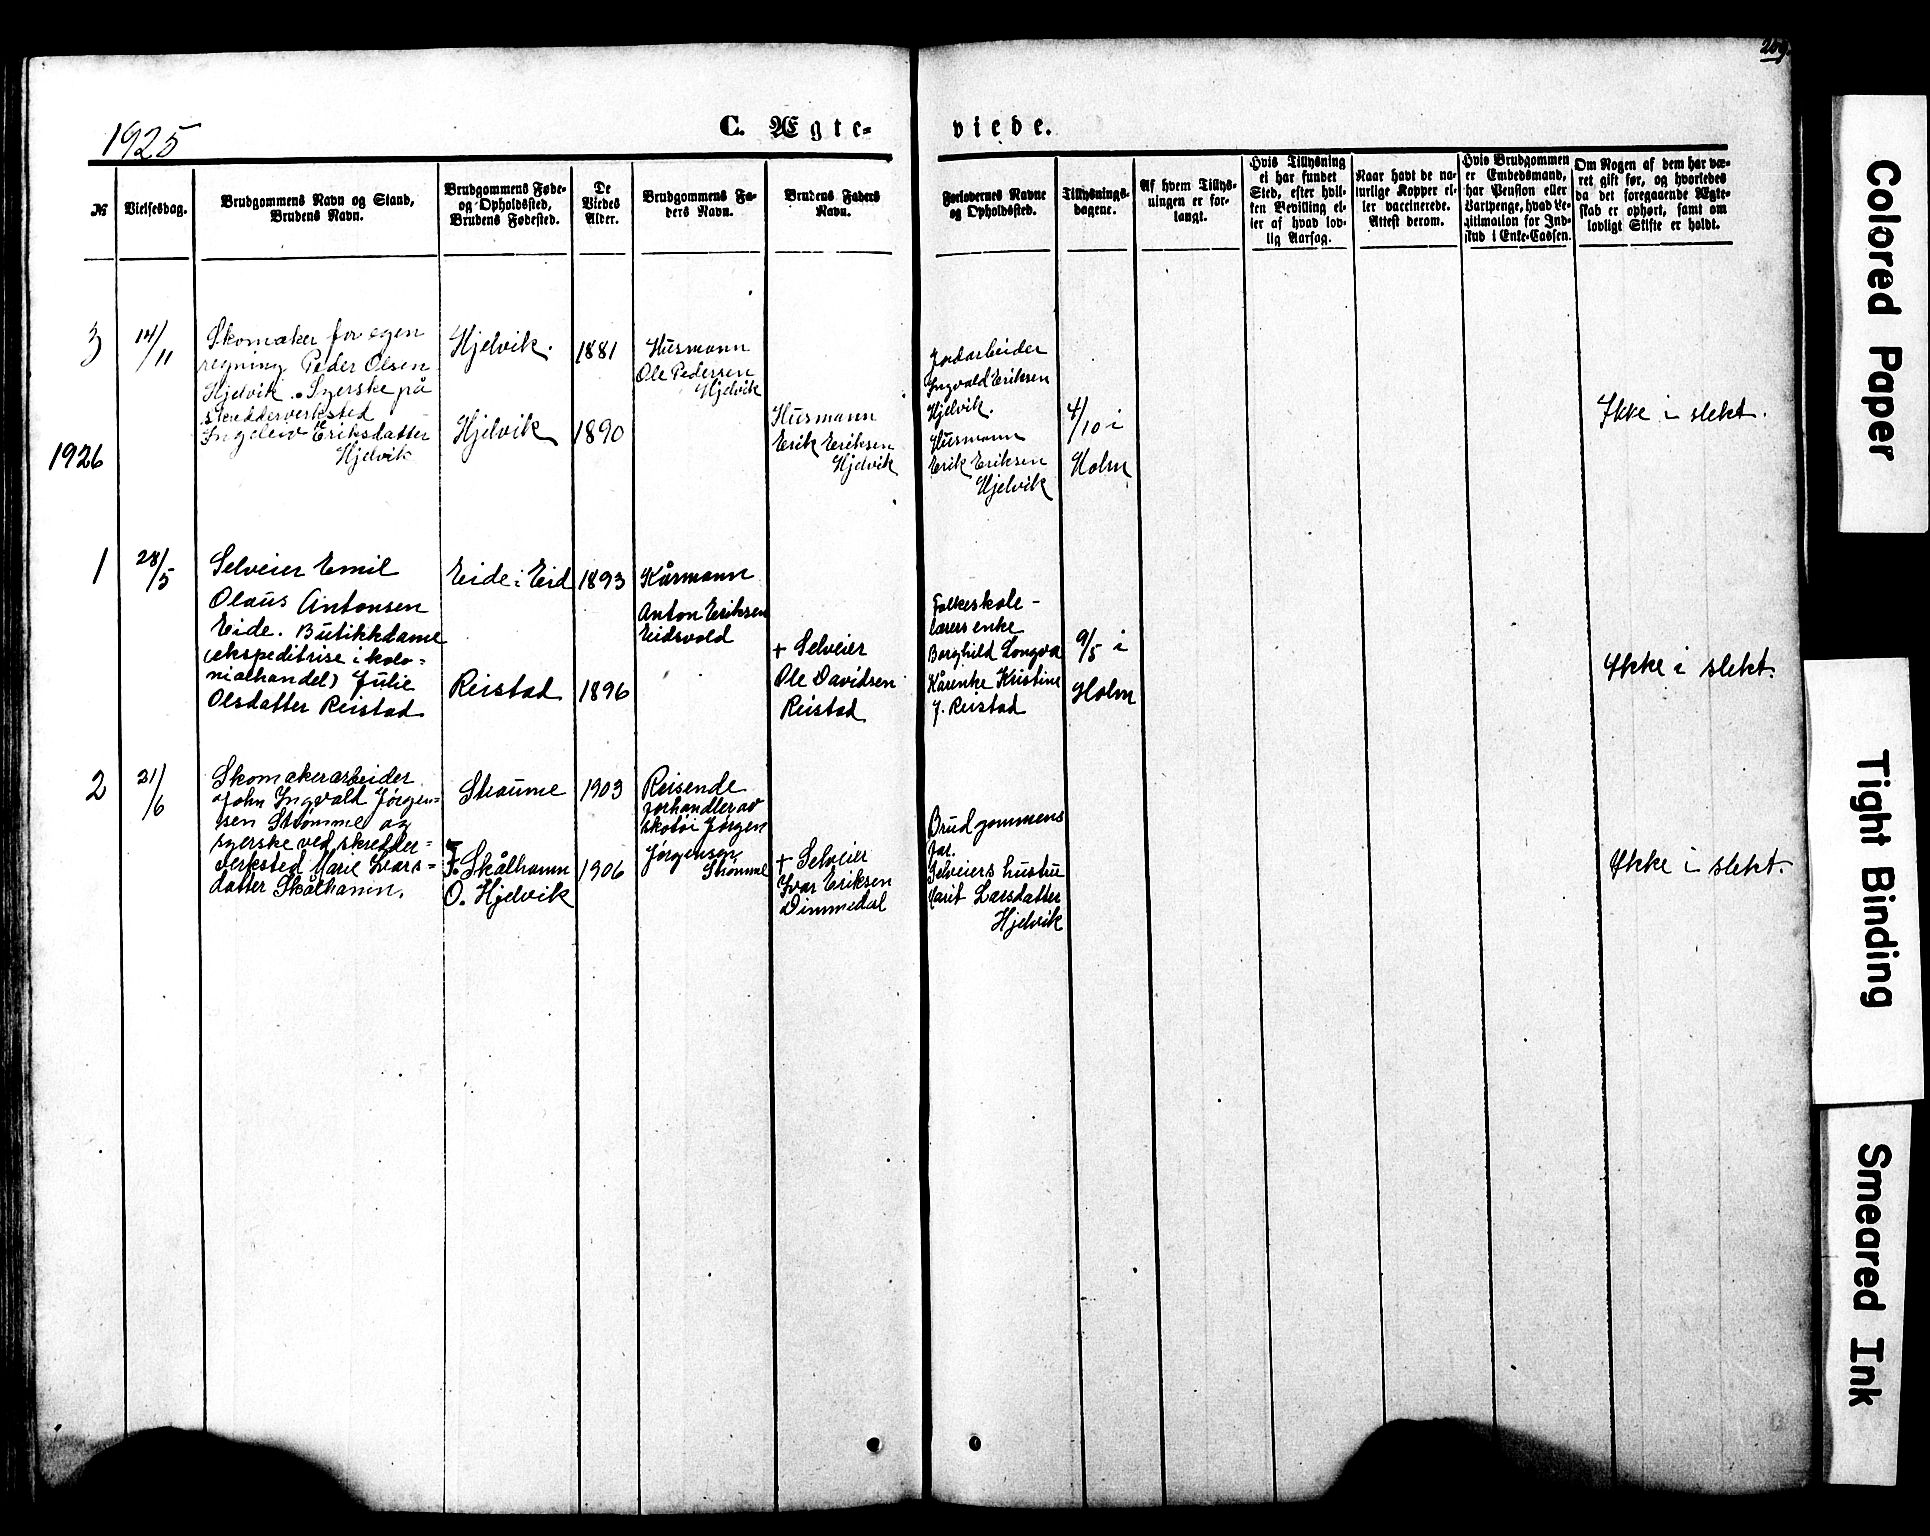 209.
1925
C. Ægte-
viede.
№
Vielsesdag.
Brudgommens Navn og Stand,
Brudens Navn.
Brudgommens Føde-
og Opholdssted,
Brudens Fødested.
De
Viedes
Alder.
Brudgommens Fa-
ders Navn.
Brudens Faders
Navn.
Forlovernes Navne
og Opholdssted.
Tillysnings-
dagene.
Af hvem Tillys-
ningen er for-
langt.
Hvis Tillysning
ei har fundet
Sted, efter hvil-
ken Bevilling el-
ler af hvad lov-
lig Aarsag.
Naar havt de na-
turlige Kopper el-
ler vaccinerede.
Attest derom.
Hvis Brudgommen
er Embedsmand,
har Pension eller
Vartpenge, hvad Le-
gitimation for Ind-
skud i Enke-Cassen.
Om Nogen af dem har væ-
ret gift før, og hvorledes
da det foregaaende Ægte-
skab er ophørt, samt om
lovligt Skifte er holdt.
3
14/11
Skomaker for egen
regning Peder Olsen
Hjelvik. Syerske på
skredderverksted
Ingeleiv Eriksdatter
Hjelvik
Hjelvik.
Hjelvik
1881
1890
Husmann
Ole Pedersen
Hjelvik
Husmann
Erik Eriksen
Hjelvik
Jordarbeider
Ingvald Eriksen
Hjelvik.
Husmann
Erik Eriksen
Hjelvik
4/10 i
Holm
Ikke i slekt.
1926
1
28/5
Selveier Emil
Olaus Antonsen
Eide. Butikkdame
(ekspeditrise i kolo=
nialhandel) Julie
Olsdatter Reistad
Eide i Eid
Reistad
1893
1896
Kårmann
Anton Eriksen
Eidsvold
+ Selveier
Ole Davidsen
Reistad
Folkeskole-
lærers enke
Borghild Longva
Kårenke Kristine
J. Reistad
9/5 i
Holm
Ikke i slekt.
2
21/6
Skomakerarbeider
John Ingvald Jørgen=
sen Strømme og
syerske ved skredder=
verksted Marie Ivars=
datter Skålhamn.
Straume
F. Skålhamn
O. Hjelvik
1903
1906
Reisende
forhandler av
skotøi Jørgen
Jørgensen
Strømme
+ Selveier
Ivar Eriksen
Dimmedal
Brudgommens
far.
Selveiers hustru
Marit Larsdatter
Hjelvik
Ikke i slekt.
Colored Paper
Tight Binding
Smeared Ink